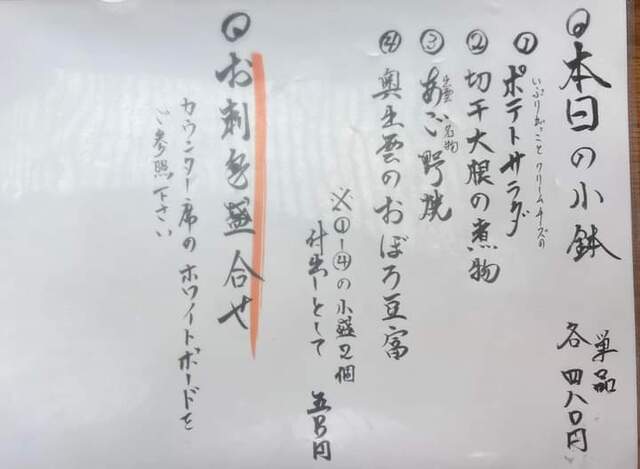 本日の小鉢
単品
各四八〇円
いぶりがっことクリームチーズの
①ポテトサラダ
②切干大根の煮物
出雲名物
③あご野焼
④奥出雲のおぼろ豆富
※①–④の小鉢2個
付出しとして 五百円
お刺身盛合せ
カウンター席のホワイトボードを
ご参照下さい